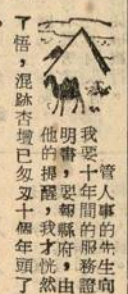 管人事的先生向
我要十年間的服務證
明書，要報縣府，由
他的提醒，我才恍然
了悟，混跡杏壇已匆匆十個年頭了